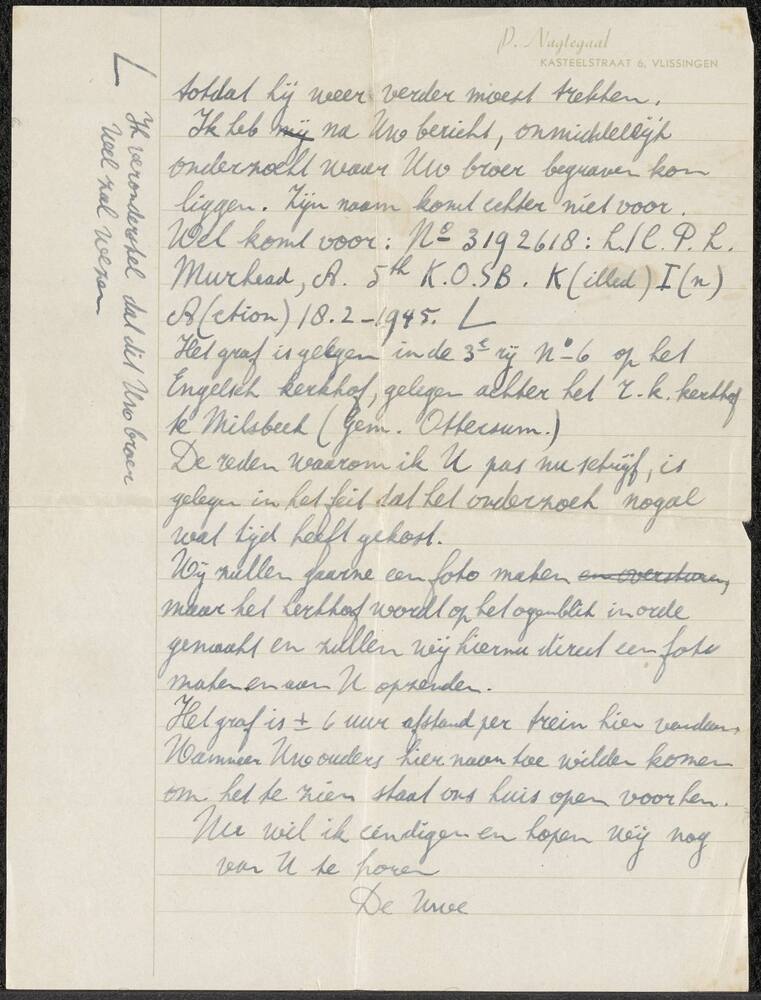 P. Nagtegaal
KASTEELSTRAAT 6, VLISSINGEN
totdat hij weer verder moest trekken.
Ik heb mij na Uw bericht, onmiddellijk
onderzocht waar Uw broer begraven kon
liggen. Zijn naam komt echter niet voor.
Wel komt voor: No 3192618: L/C. P. L.
Murhead, A. 5th K.O.S.B. K(illed) I(n)
A(ction) 18.2-1945. L
Het graf is gelegen in de 3e rij No-6 op het
Engelsch kerkhof, gelegen achter het r.k. kerkhof
te Milsbeek (Gem. Ottersum.)
De reden waarom ik U pas nu schrijf, is
gelegen in het feit dat het onderzoek nogal
wat tijd heeft gekost.
Wij zullen gaarne een foto maken en oversturen,
maar het kerkhof wordt op het ogenblik in orde
gemaakt en zullen wij hierna direct een foto
maken en aan U opzenden.
Het graf is ± 6 uur afstand per trein hier vandaan.
Wanneer Uw ouders hier naar toe wilden komen
om het te zien staat ons huis open voor hen.
Nu wil ik eindigen en hopen wij nog
van U te horen
De Uwe
L Ik veronderstel dat dit Uw broer
wel zal wezen